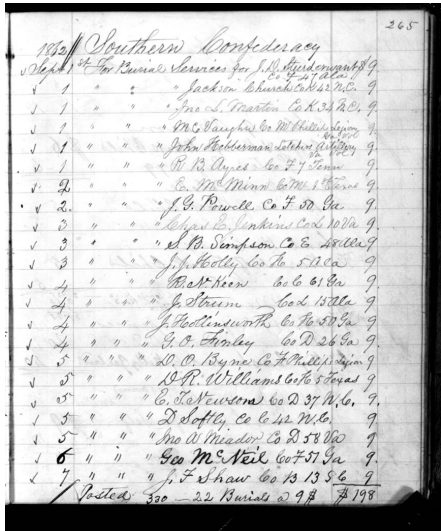 265
1862 Southern Confederacy
√ Sept 1st For Burial Services for J. D. Sturderwant $ 9.
Co F 47 Ala
√ 1 " " " " Jackson Church Co K 42 N.C. 9.
√ 1 " " " Jno S. Martin Co K 34 N.C. 9.
√ 1 " " " M C Vaughn Co M Phillips Legion 9.
√ 1 " " " John Hobberman Letcher Artillery 9.
√ 1 " " " R B. Ayres Co F 7 Tenn 9.
√ 2 " " " C. McMinn Co M 1st Texas 9.
√ 2. " " " J. G. Powell Co F 50 Ga 9.
√ 3 " " " Chas E. Jenkins Co L 10 Va 9.
√ 3 " " " S. B. Simpson Co E 48 Ala 9.
√ 3 " " " J. J. Holly Co H 5 Ala 9.
√ 4 " " " Koon Co C 61 Ga 9.
√ 4 " " " J Streum Co L 15 Ala 9.
√ 4 " " " J. Hollinsworth Co H. 50 Ga 9.
√ 4 " " " G. O. Finley Co D 26 Ga 9.
√ 5 " " " D. O. Byne Co F Phillips Legion 9.
√ 5 " " " D. R. Williams Co H 5 Texas 9.
√ 5 " " " C. T. Newsom Co D 37 N.C. 9.
√ 5 " " " D Softly Co C 42 N.C. 9.
√ 5 " " " Jno A Meador Co D 58 Va 9.
√ 6 " " " Geo McNeil Co F 51 Ga 9.
√ 7 " " " J. F Shaw Co B 13 S C 9.
Posted 330 — 22 Burials a 9 $ $ 198